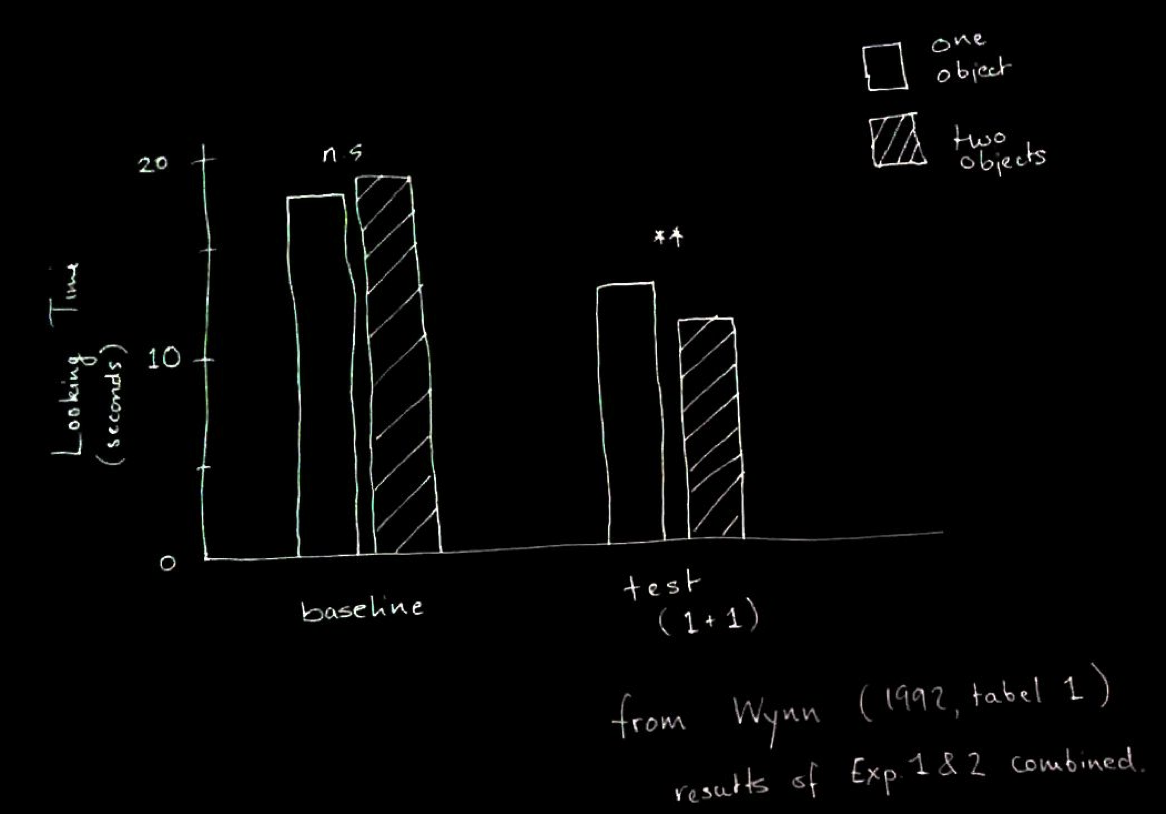 one
object
two
objects
n.s
20
**
10
0
Looking Time
(seconds)
baseline
test
(1+1)
from Wynn (1992, tabel 1)
results of Exp. 1 & 2 combined.